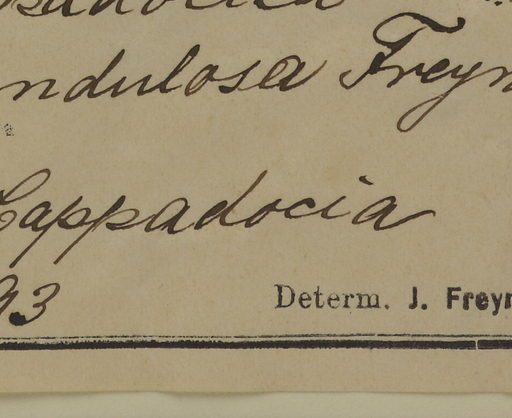 ndulosa Freyn
Cappadocia
93
Determ. J. Freyn